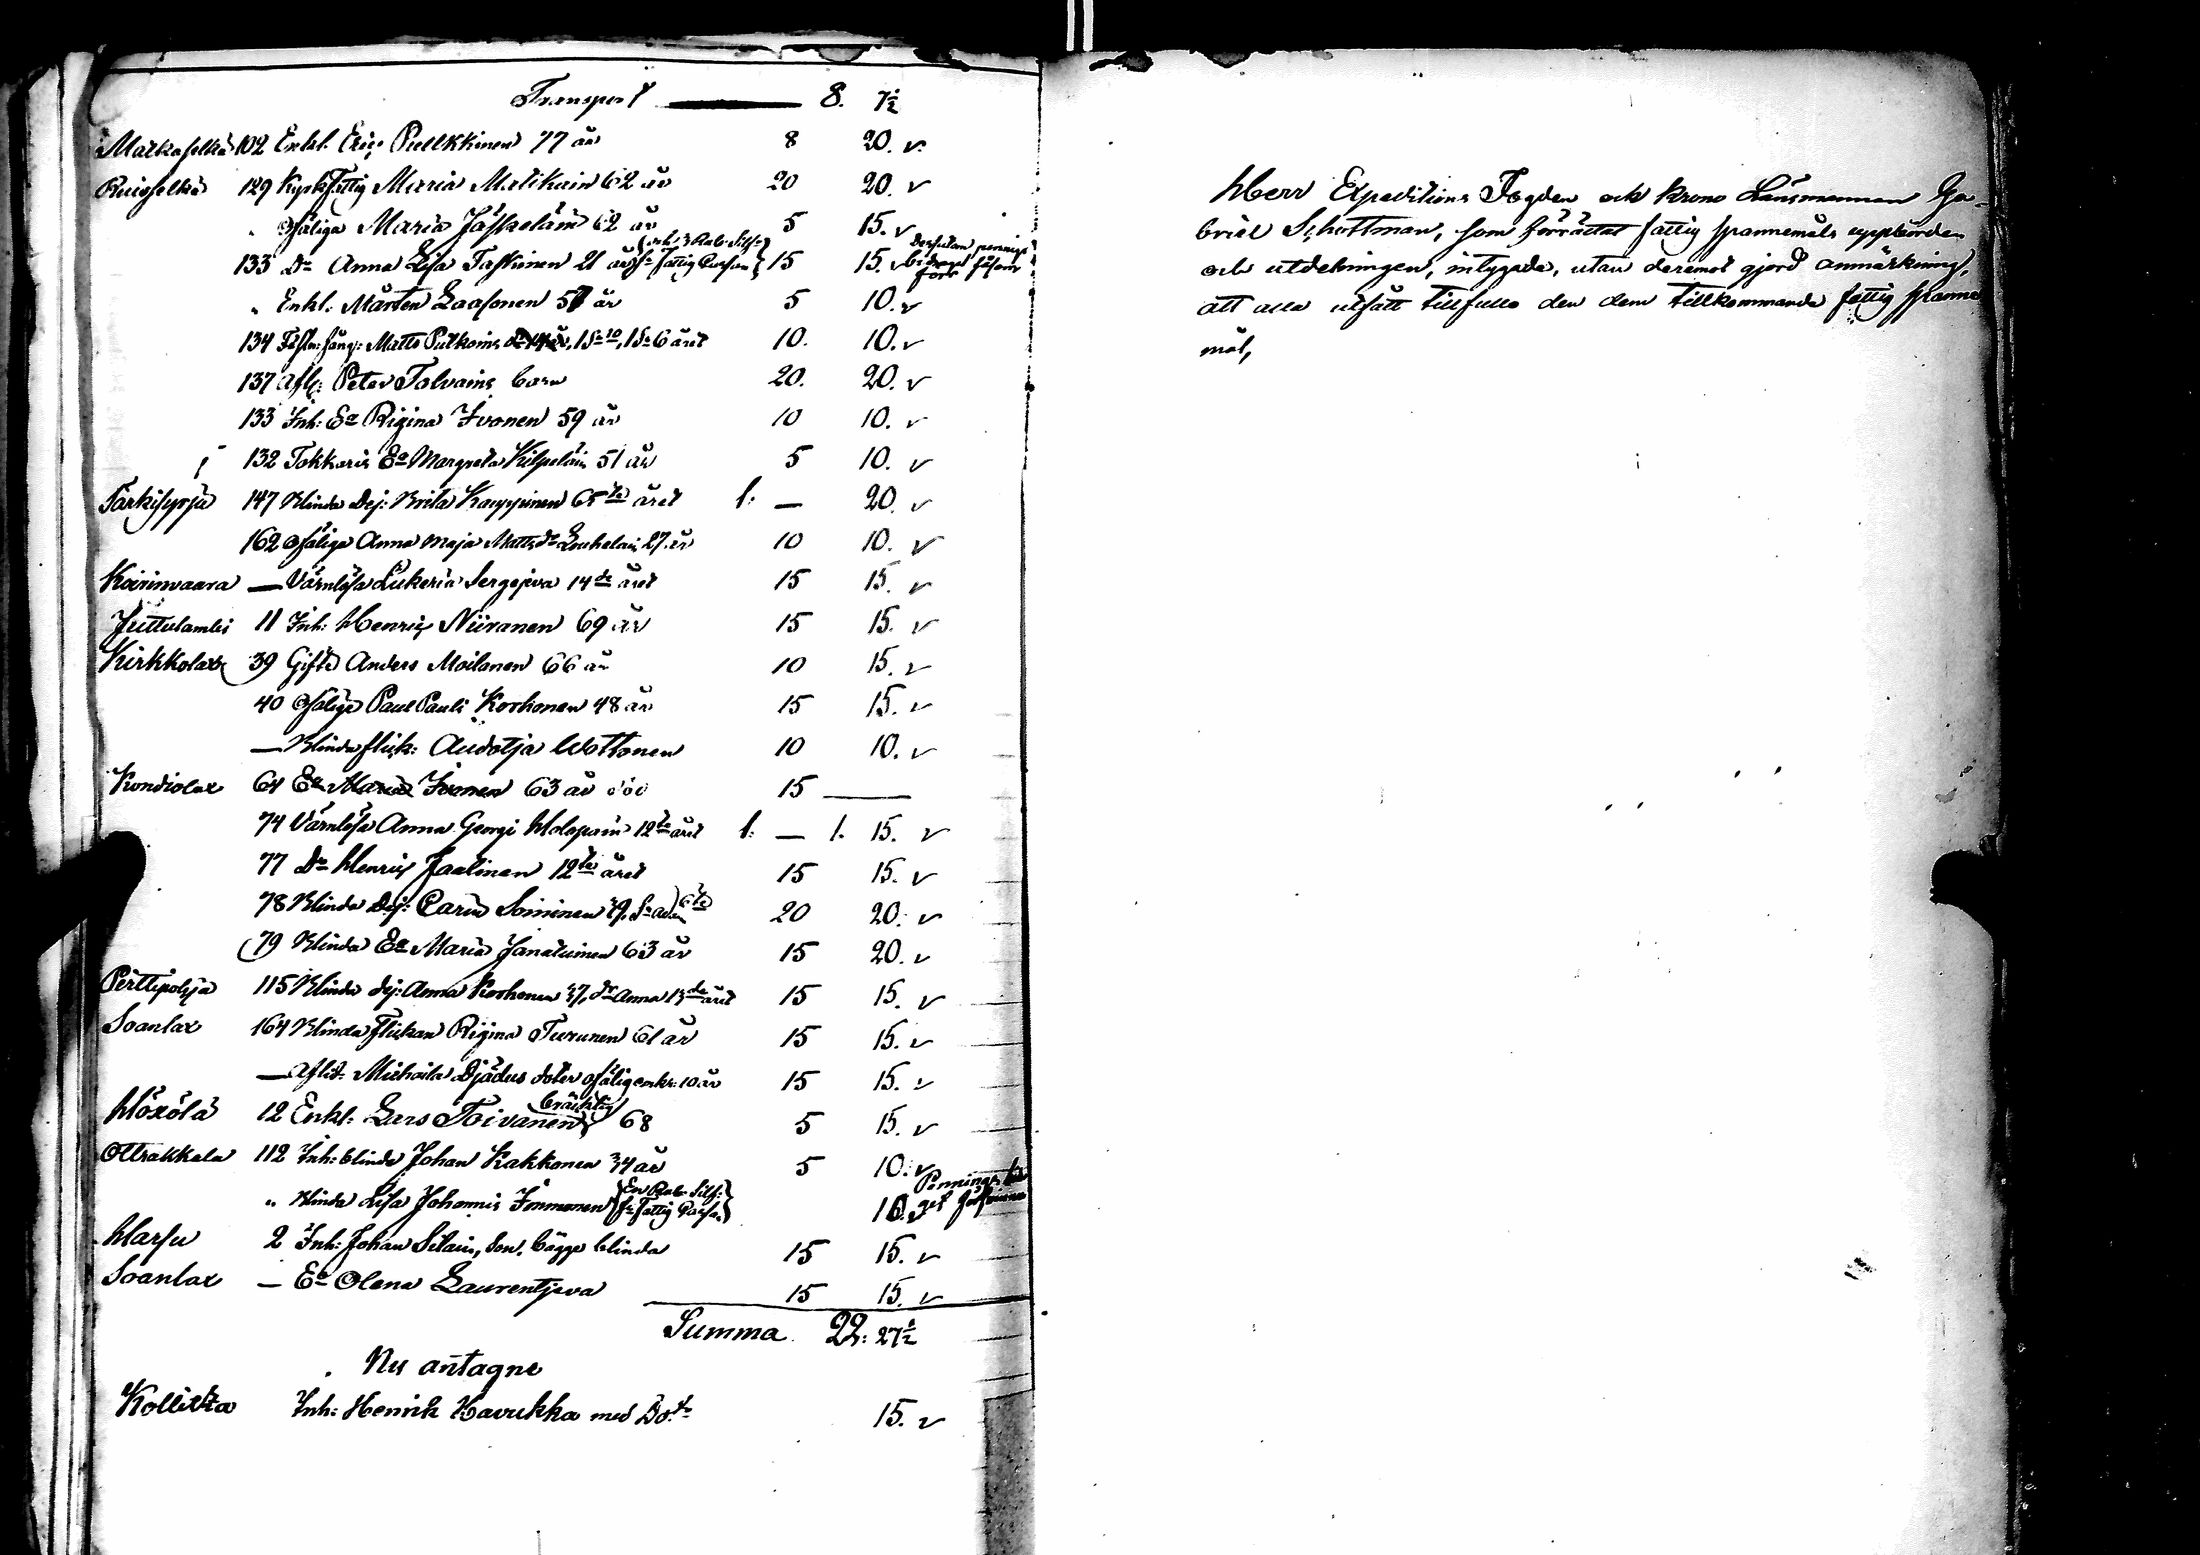 Transport — 8. 7½
Matkaselkä 102 Enkl. Eric Pullkkinen 77 år 8 20. v
Ruigselkä 129 Kyrkfattig Maria Matikain 62 år 20 20. v
" ofäliga Maria Jäskeläin 62 år 5 15. v
133 Do Anna Lisa Taskinen 21 år 15 15. v
" Enkl. Mårten Laasonen 57 år 5 10. v
134 Matts Putkoins 10. 10. v
137 afl: Peter Tolvains barn 20. 20. v
133 Inh: Ea Rigina Ivonen 59 år 10 10. v
132 Tokkaris Ea Margreta Kilpeläin 51 år 5 10. v
Tarkisyrjä 147 Blinda Dej: Brita Kauppinen 65te året 1: — 20. v
162 ofäliga Anna Maja Matts dr Louhelain 27 år 10 10. v
Koirinvaara — Värnlösa Lukeria Sergejeva 14de året 15 15. v
Juttulambi 11 Inh: Henric Niiranen 69 år 15 15. v
Kirkkolax 39 Gifte Anders Moilanen 66 år 10 15. v
40 ofälige Paul Pauli Korhonen 48 år 15 15. v
— Blinda flick: Audotja Wottonen 10 10. v
Kondiolax 64 Ea Maria Ivonen 63 år död 15 —
74 Värnlösa Anna Georgi Holopain 12te året 1: — 1. 15. v
77 Do Henric Jaalinen 12te året 15 15. v
78 Blinda Dej: Carin Soininen 20 20. v
79 Blinda Ea Maria Janatuinen 63 år 15 20. v
Perttipohja 115 Blinda dej: Anna Korhonen 37, dr Anna 13de året 15 15. v
Soanlax 164 Blinda Flickan Rigina Turunen 61 år 15 15. v
— Aflid. Michaila Djädus doter ofälig 10 år 15 15. v
Höxölä 12 Enkl: Lars Toivanen bräcklig 68 5 15. v
Ottrakkala 112 Inh: blinde Johan Kakkonen 34 år 5 10. v
" Blinda Lisa Johannis Immonen {En Rub. Silf: fr Fattig Cassan} 10.
Harsu 2 Inh: Johan Silain, Son, bägge blinda 15 15. v
Soanlax — Ea Olena Laurentjeva 15 15. v
Summa 22: 27½
Nu antagne
Kollitka Inh: Henrik Havukka med Do.tr 15. v
Herr Expeditions Fogden och Krono Länsmannen Ga-
briel Schottman, som förrättat fattig spannemåls uppbörden
och utdelningen, intygade, utan deremot gjord anmärkning,
att alla utfått tillfullo den dem tillkommande fattig spanne
mål,